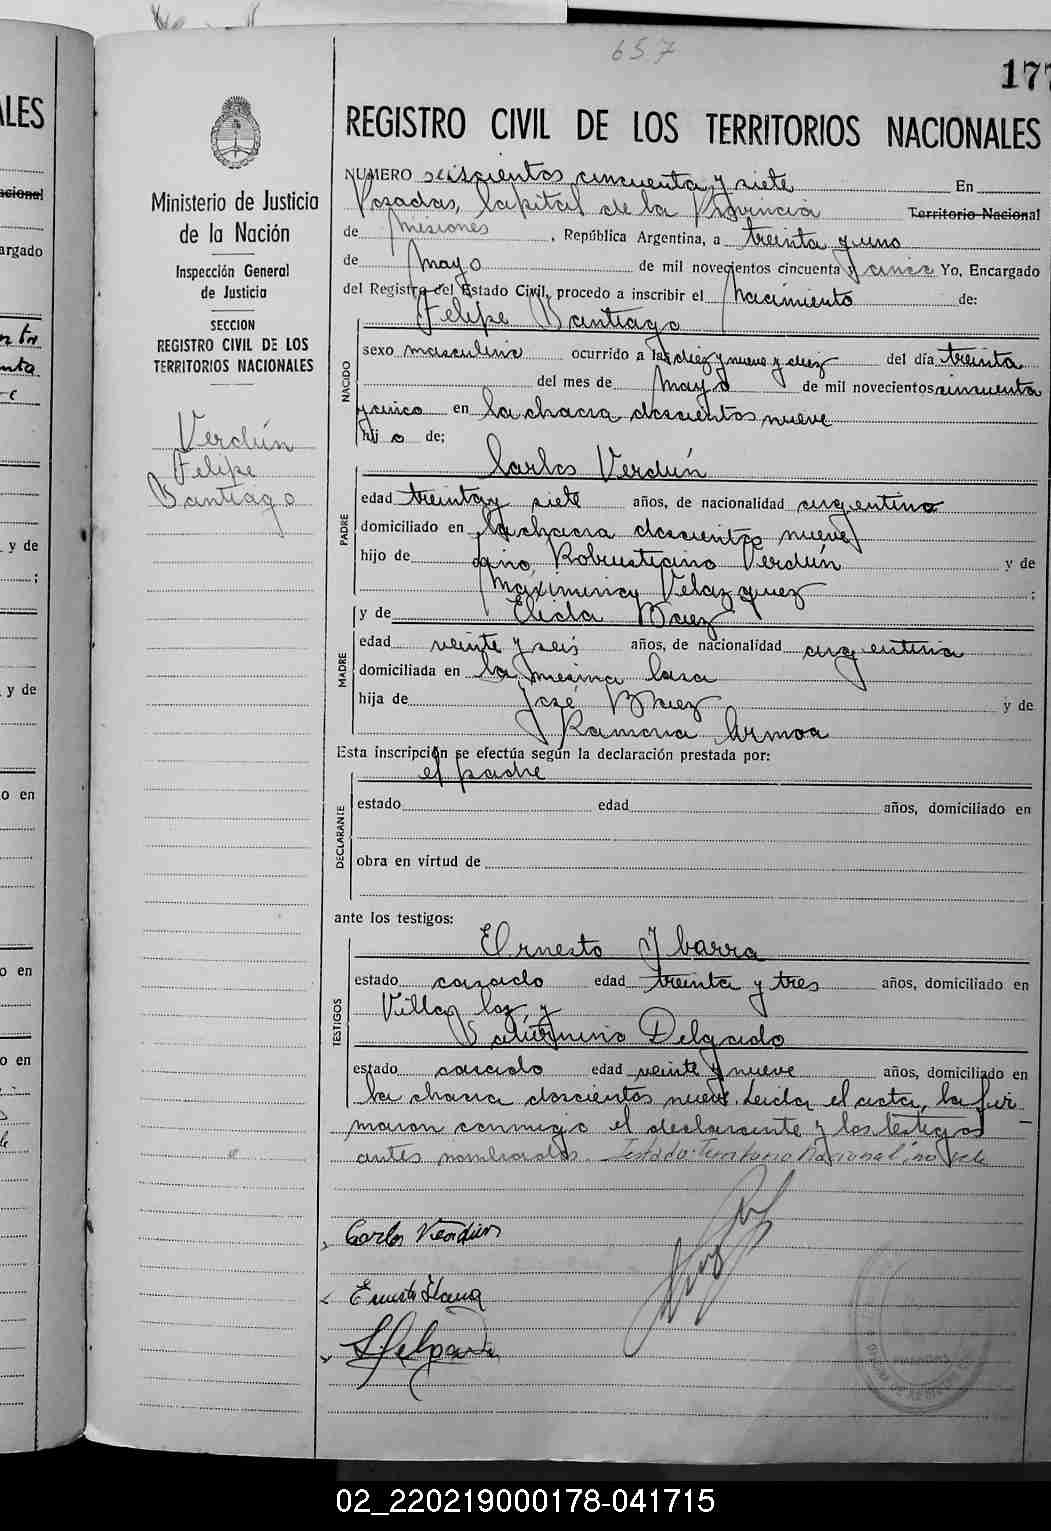 657
177
ALES
REGISTRO CIVIL DE LOS TERRITORIOS NACIONALES
Ministerio de Justicia
de la Nación
Inspección General
de Justicia
SECCION
REGISTRO CIVIL DE LOS
TERRITORIOS NACIONALES
Verdún
Felipe
Santiago
NUMERO seiscientos cincuenta y siete En
Posadas, Capital de la Provincia Territorio Nacional
de Misiones, República Argentina, a treinta y uno
de mayo de mil novecientos cincuenta y cinco Yo, Encargado
del Registro del Estado Civil, procedo a inscribir el nacimiento de:
Felipe Santiago
NACIDO
sexo masculino ocurrido a las diez y nueve y diez del día treinta
del mes de mayo de mil novecientos cincuenta
y cinco en la chacra doscientos nueve
hijo de;
Carlos Verdún
PADRE
edad treinta y siete años, de nacionalidad argentino
domiciliado en la chacra doscientos nueve
hijo de Robustiano Verdún y de
Maximina Velazquez ;
y de Elida Baez
MADRE
edad veinte y seis años, de nacionalidad argentina
domiciliada en la misma casa
hija de José Baez y de
Ramona Armoa
Esta inscripción se efectúa según la declaración prestada por:
el padre
DECLARANTE
estado edad años, domiciliado en
obra en virtud de
ante los testigos:
Ernesto Ybarra
TESTIGOS
estado casado edad treinta y tres años, domiciliado en
Villa y
Saturnino Delgado
estado casado edad veinte y nueve años, domiciliado en
la chacra doscientos nueve. Leida el acta, la fir
maron conmigo el declarante y los testigos
antes nombrados. Testado: Territorio Nacional, no vale
Carlos Verdún
02_220219000178-041715